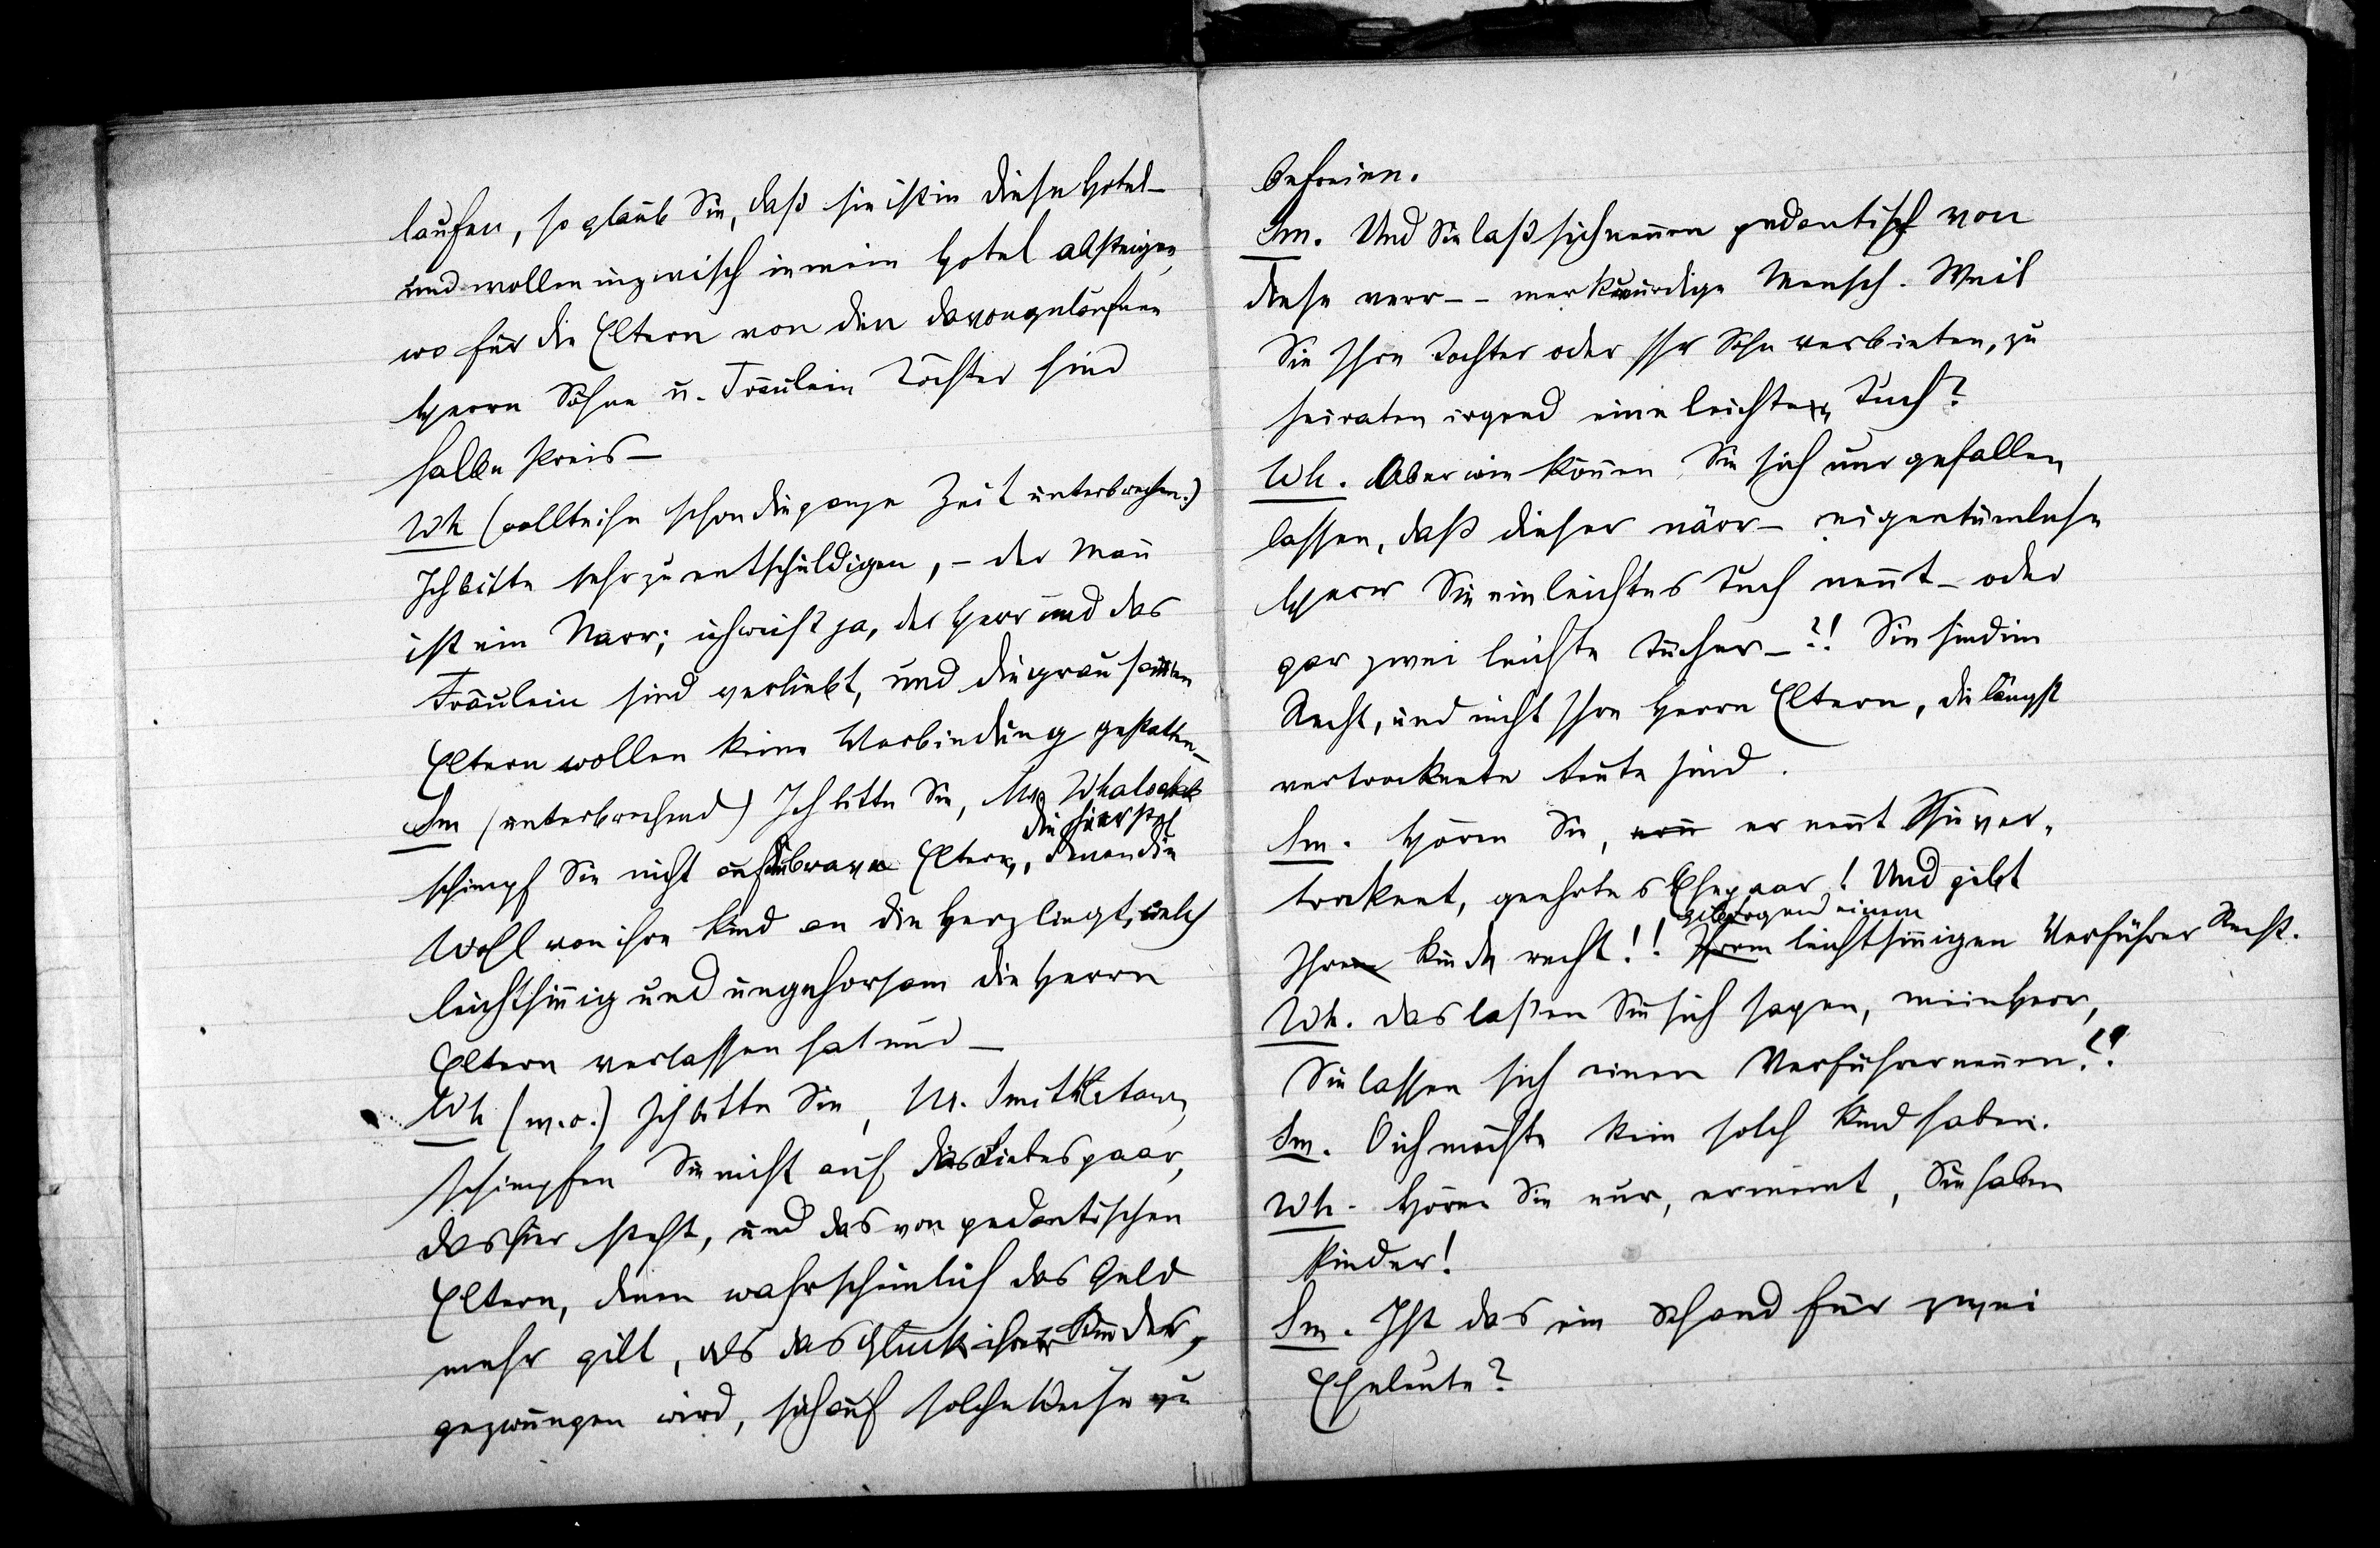 laufen, so glaub Sie, daß sie ist in diese Hotel-
und wollen inzwisch in mein Hotel absteigen,
wo für die Eltern von den davongelaufnen
Herrn Söhne u. Fräulein Töchter sind
halbe Preis –
Wh (wollte ihn schon die ganze Zeit unterbrechen.)
Ich bitte sehr zu entschuldigen, – der Mann
ist ein Narr; ich weiß ja, der Herr und das
Fräulein sind verliebt, und die grausamen
Eltern wollen keine Verbindung gestatten –
Sm (unterbrechend) Ich bitte Sie, Mr.
die hier steh
schimpf Sie nicht auf die brave Eltern, denen die
Wohl von ihre Kind an die Herz liegt, welch
leichtsinnig und ungehorsam die Herrn
Eltern verlassen hat und –
Wh (w.o.) Ich bitte Sie, M.
schimpfen Sie nicht auf das Liebespaar,
das hier steht, und das von pedantischen
Eltern, denen wahrscheinlich das Geld
mehr gilt, als das Glück ihrer Kinder,
gezwungen wird, sich auf solche Weise zu
befreien.
Sm. Und Sie laß sich nennen pedantisch von
diese verr-- merkwürdige Mensch. Weil
Sie Ihre Tochter oder Ihr Sohn verbieten, zu
heiraten irgend eine leichte Tuch?
Wh. Aber wie können Sie sich nur gefallen
lassen, daß dieser närr- eigentümliche
Herr Sie ein leichtes Tuch nennt – oder
gar zwei leichte Tücher –?! Sie sind im
Recht, und nicht Ihre Herrn Eltern, die längst
vertrocknete Leute sind.
Sm. Hören Sie, er nennt Sie ver-
trocknet, geehrtes Ehepaar! Und gibt
gibt irgend einem
Ihre Kinde recht!! Ihrem leichtsinnigen Verführer Recht.
Wh. Das laßen Sie sich sagen, mein Herr,
Sie lassen sich einen Verführer nennen?!
Sm. O ich möchte kein solch Kind haben.
Wh. Hören Sie nur, er meint, Sie haben
Kinder!
Sm. Ist das ein Schand für zwei
Eheleute?